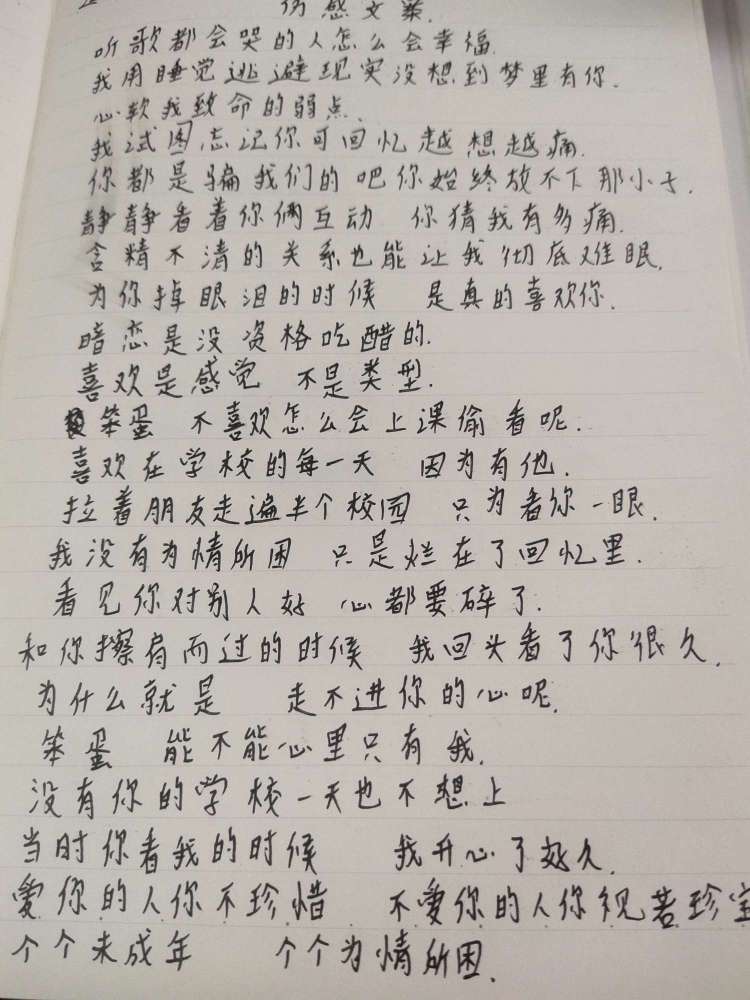 伤感文案.
听歌都会哭的人怎么会幸福.
我用睡觉逃避现实没想到梦里有你.
心软我致命的弱点.
我试图忘记你可回忆越想越痛.
你都是骗我们的吧你始终放不下那小子.
静静看着你俩互动 你猜我有多痛.
含精不清的关系也能让我彻底难眠.
为你掉眼泪的时候 是真的喜欢你.
暗恋是没资格吃醋的.
喜欢是感觉 不是类型.
笨蛋 不喜欢怎么会上课偷看呢.
喜欢在学校的每一天 因为有他.
拉着朋友走遍半个校园 只为看你一眼.
我没有为情所困 只是烂在了回忆里.
看见你对别人好 心都要碎了.
和你擦肩而过的时候 我回头看了你很久.
为什么就是 走不进你的心呢.
笨蛋 能不能心里只有我.
没有你的学校一天也不想上
当时你看我的时候 我开心了好久.
爱你的人你不珍惜 不爱你的人你视若珍宝
个个未成年 个个为情所困.